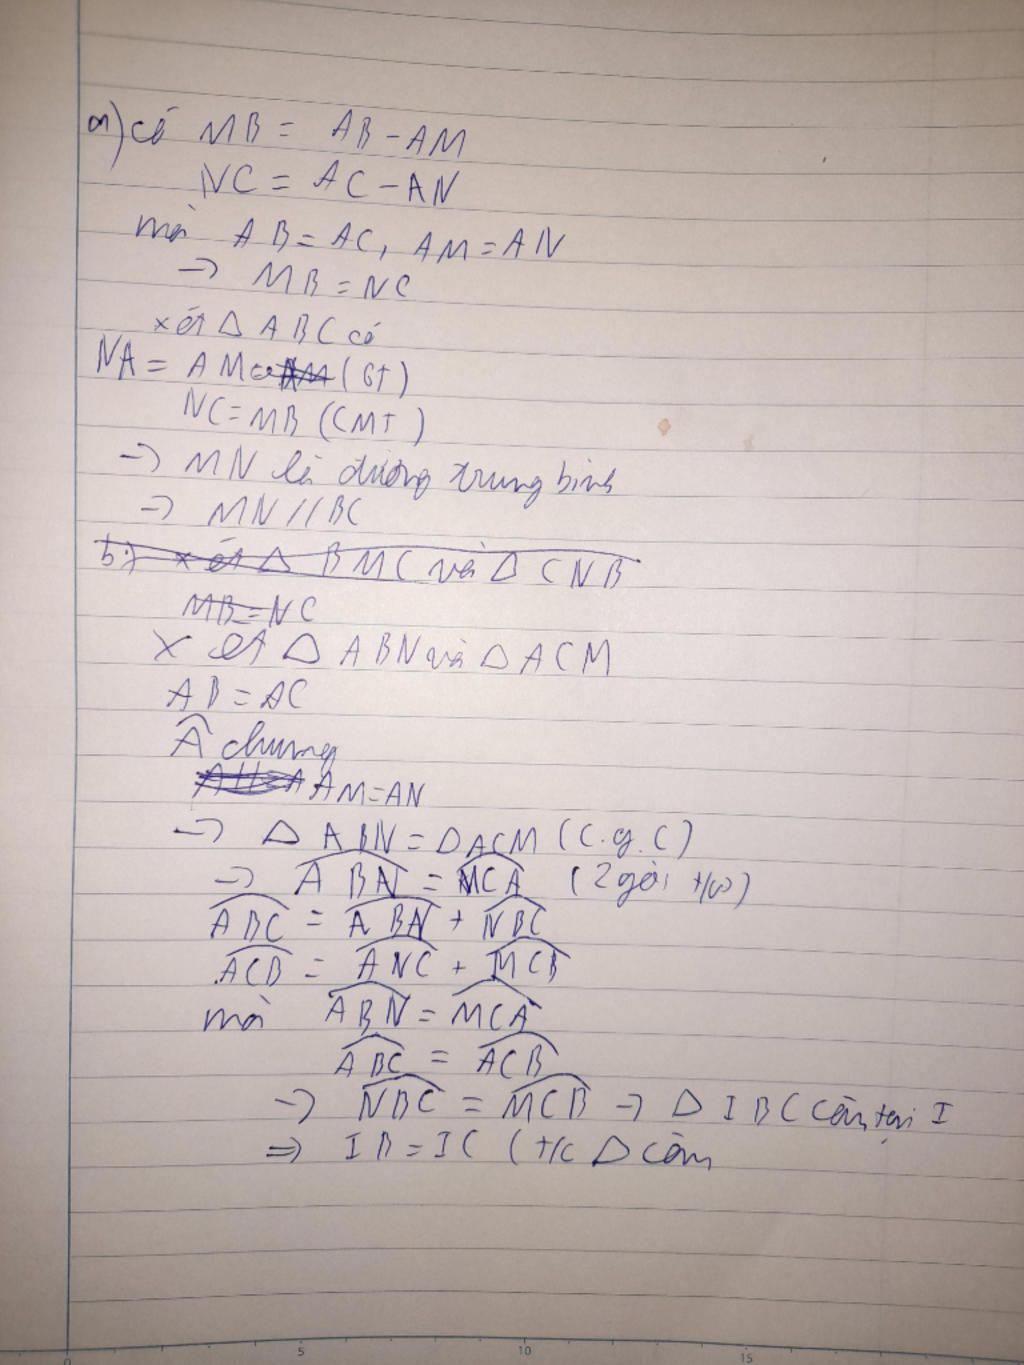 a) có MB = AB - AM
NC = AC - AN
mà AB = AC, AM = AN
-> MB = NC
xét Δ ABC có
NA = AM (GT)
NC = MB (CMT)
-> MN là đường trung bình
-> MN // BC
b) xét Δ BMC và Δ CNB
MB = NC
xét Δ ABN và Δ ACM
AB = AC
Â chung
AM = AN
-> Δ ABN = Δ ACM (C.g.C)
-> \widehat{ABN} = \widehat{MCA} (2 góc t/ứ)
\widehat{ABC} = \widehat{ABN} + \widehat{NBC}
\widehat{ACB} = \widehat{ANC} + \widehat{MCB}
mà \widehat{ABN} = \widehat{MCA}
\widehat{ABC} = \widehat{ACB}
-> \widehat{NBC} = \widehat{MCB} -> Δ IBC cân tại I
=> IB = IC (t/c Δ cân
0 5 10 15